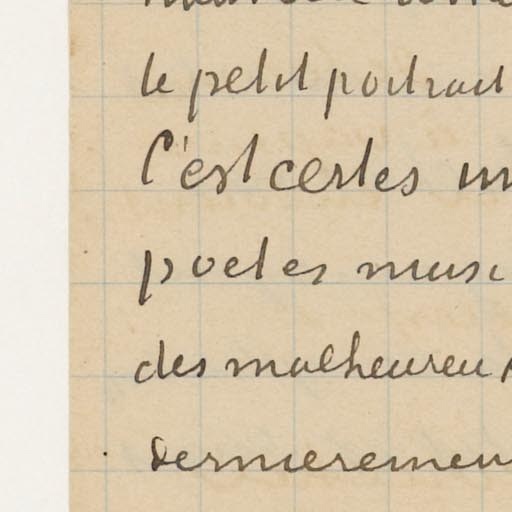 le petit portrait
C'est certes un
poetes musi
des malheureu
Dernieremen